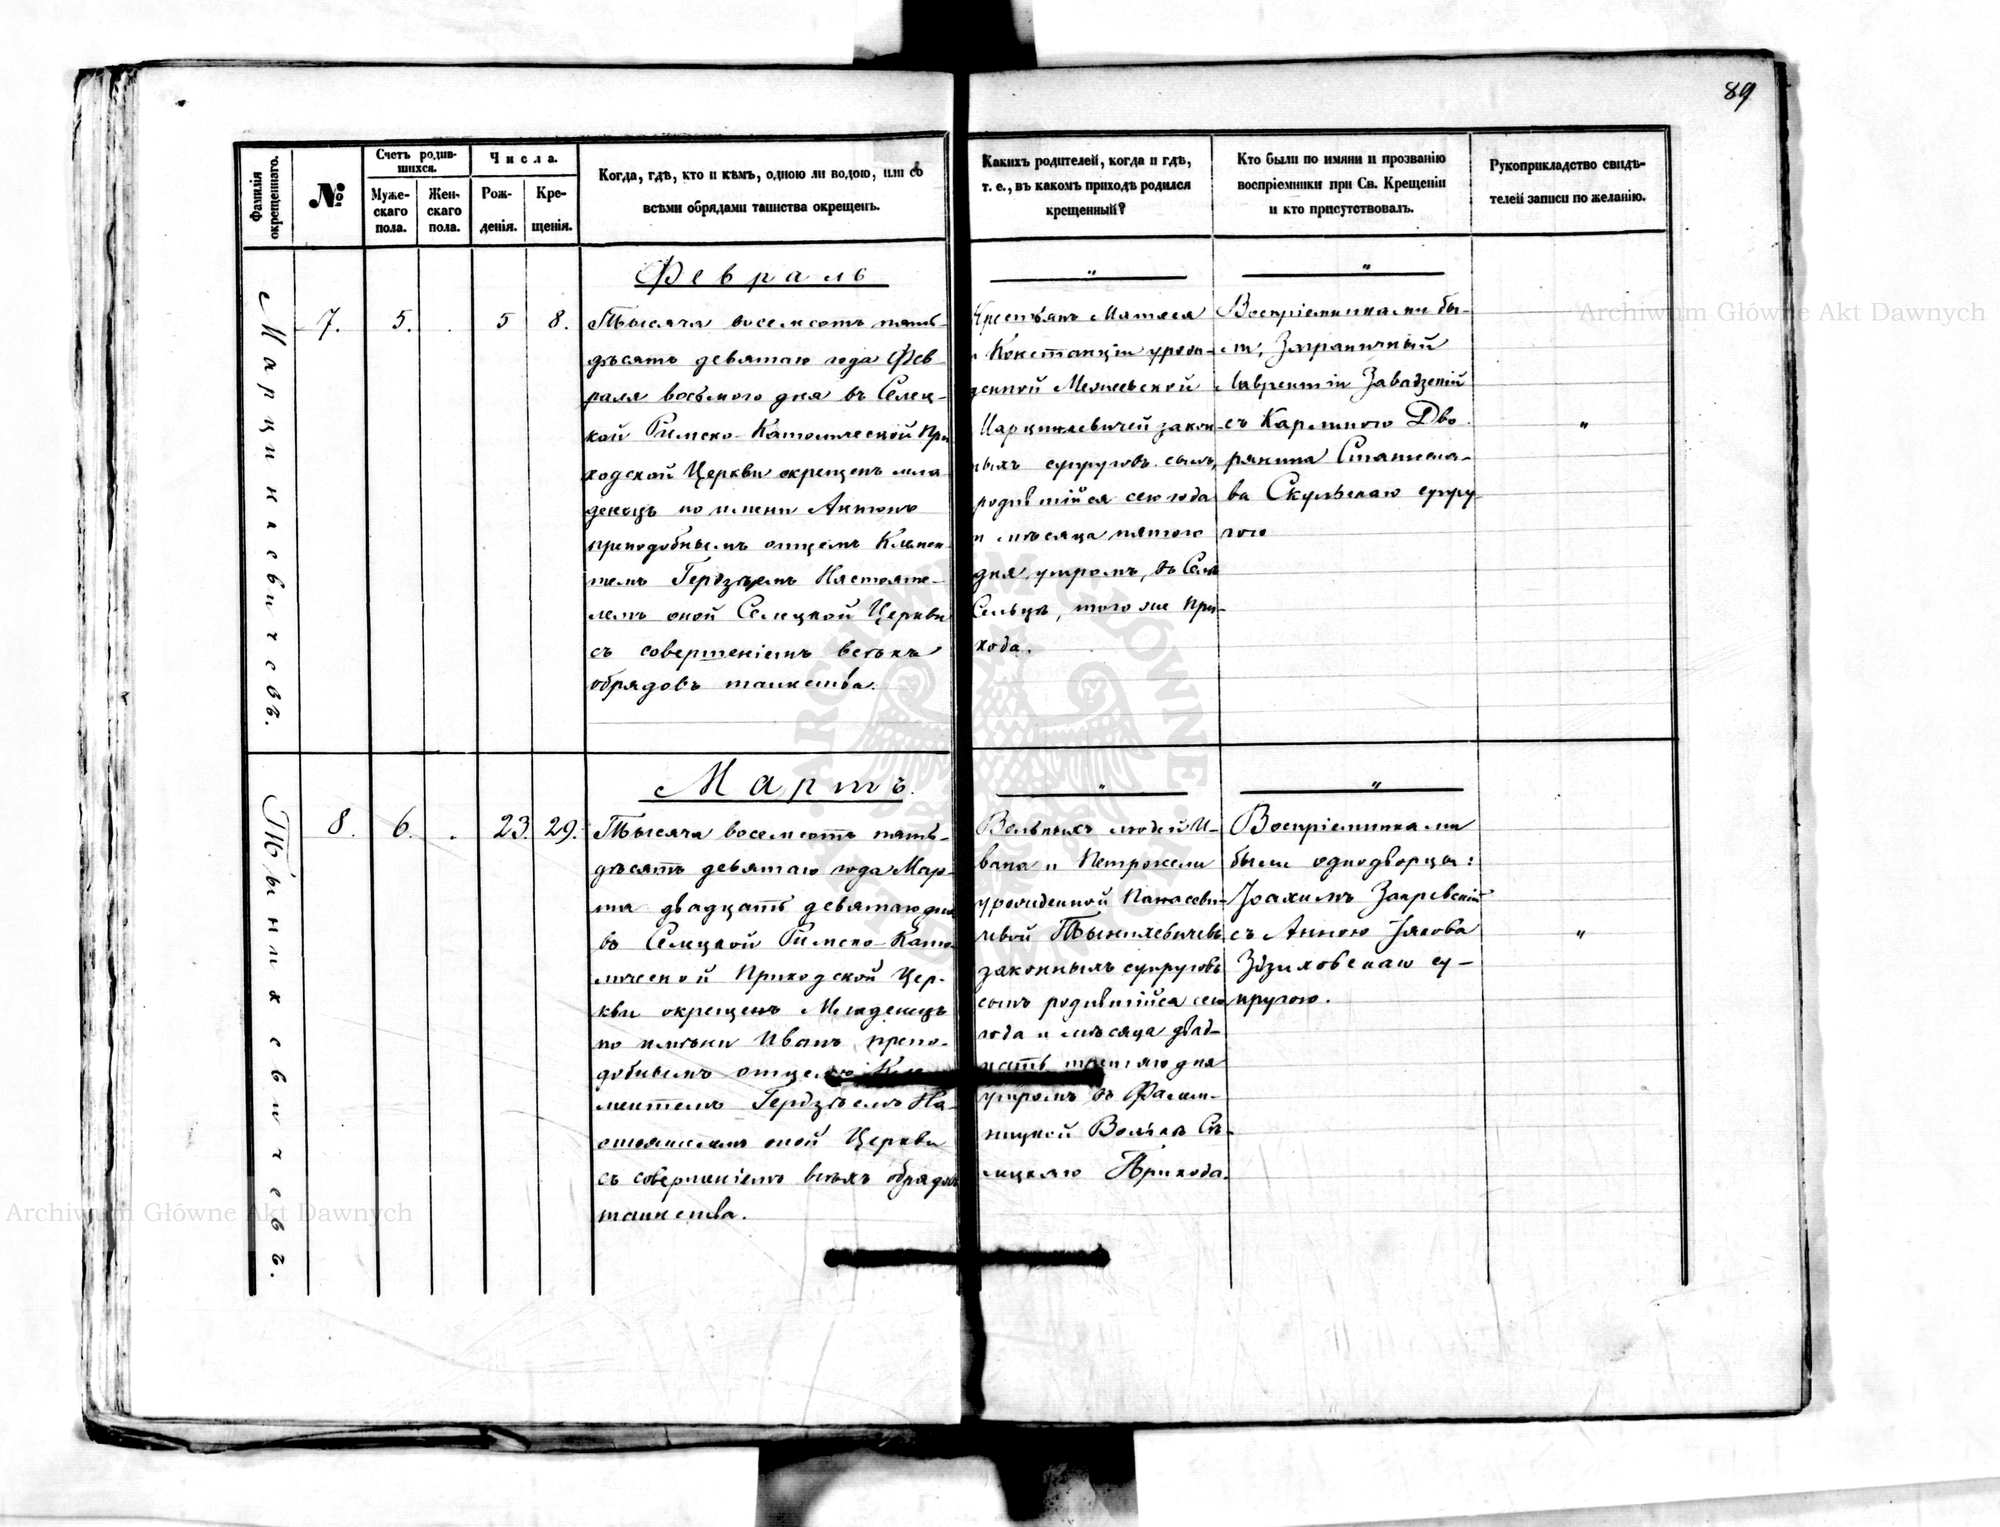 89
Фамилія окрещеннаго.
№
Счетъ родив-
шихся.
Муже-
скаго
пола.
Жен-
скаго
пола.
Числа.
Рож-
денія.
Кре-
щенія.
Когда, гдѣ, кто и кѣмъ, одною ли водою, или со
всѣми обрядами таинства окрещенъ.
Какихъ родителей, когда и гдѣ,
т. е., въ какомъ приходѣ родился
крещенный?
Кто были по имяни и прозванію
воспріемники при Св. Крещеніи
и кто присутствовалъ.
Рукоприкладство свидѣ-
телей записи по желанію.
Марцинкевичевъ.
7.
5.
.
5
8.
Февраль
Тысяча восемсотъ пять-
дѣсятъ девятаго года Фев-
раля восьмого дня въ Селец-
кой Римско-Католической При
ходской Церкви окрещенъ мла
денецъ по имени Антонъ
преподобнымъ отцемъ Клемен-
темъ Гердзѣемъ Настояте-
лемъ оной Селецкой Церкви
съ совершеніемъ всѣхъ
обрядовъ таинства.
"
Крестьянъ Матвея
и Констанціи урож-
денной
Марцинкевичей закон-
ныхъ супруговъ сынъ,
родившійся сего года
и мѣсяца пятого
дня, утромъ, въ Селѣ
Сельцѣ, того же При-
хода.
"
Воспріемниками бы-
ли, Заграничный
Лаврентій Завадзскій
съ Двo
рянина Станисла-
ва супру
гою
"
Тынкевичевъ.
8.
6.
.
23.
29.
Мартъ.
Тысяча восемсотъ пять-
дѣсятъ девятаго года Мар-
та двадцать девятаго дня
въ Селецкой Римско-Като-
лической Приходской Цер-
кви окрещенъ Младенецъ
по имѣни Иванъ препо-
добнымъ отцемъ Кле
ментемъ Гердзѣемъ На-
стоятелемъ оной Церкви
съ совершеніемъ всѣхъ обрядовъ
таинства.
"
Вольныхъ людей И-
вана и Петронели
урожденной Панасеви-
чевой
законныхъ супруговъ
сынъ родившійся сего
года и мѣсяца двад-
цать третяго дня
утромъ въ Фалим-
ницкой Волькѣ Се-
лецкаго Прихода.
"
Воспріемниками
были однодворцы:
Іоахимъ Закревскій
съ Анною Іякова
су-
пругою.
"
Archiwum Główne Akt Dawnych
Archiwum Główne Akt Dawnych